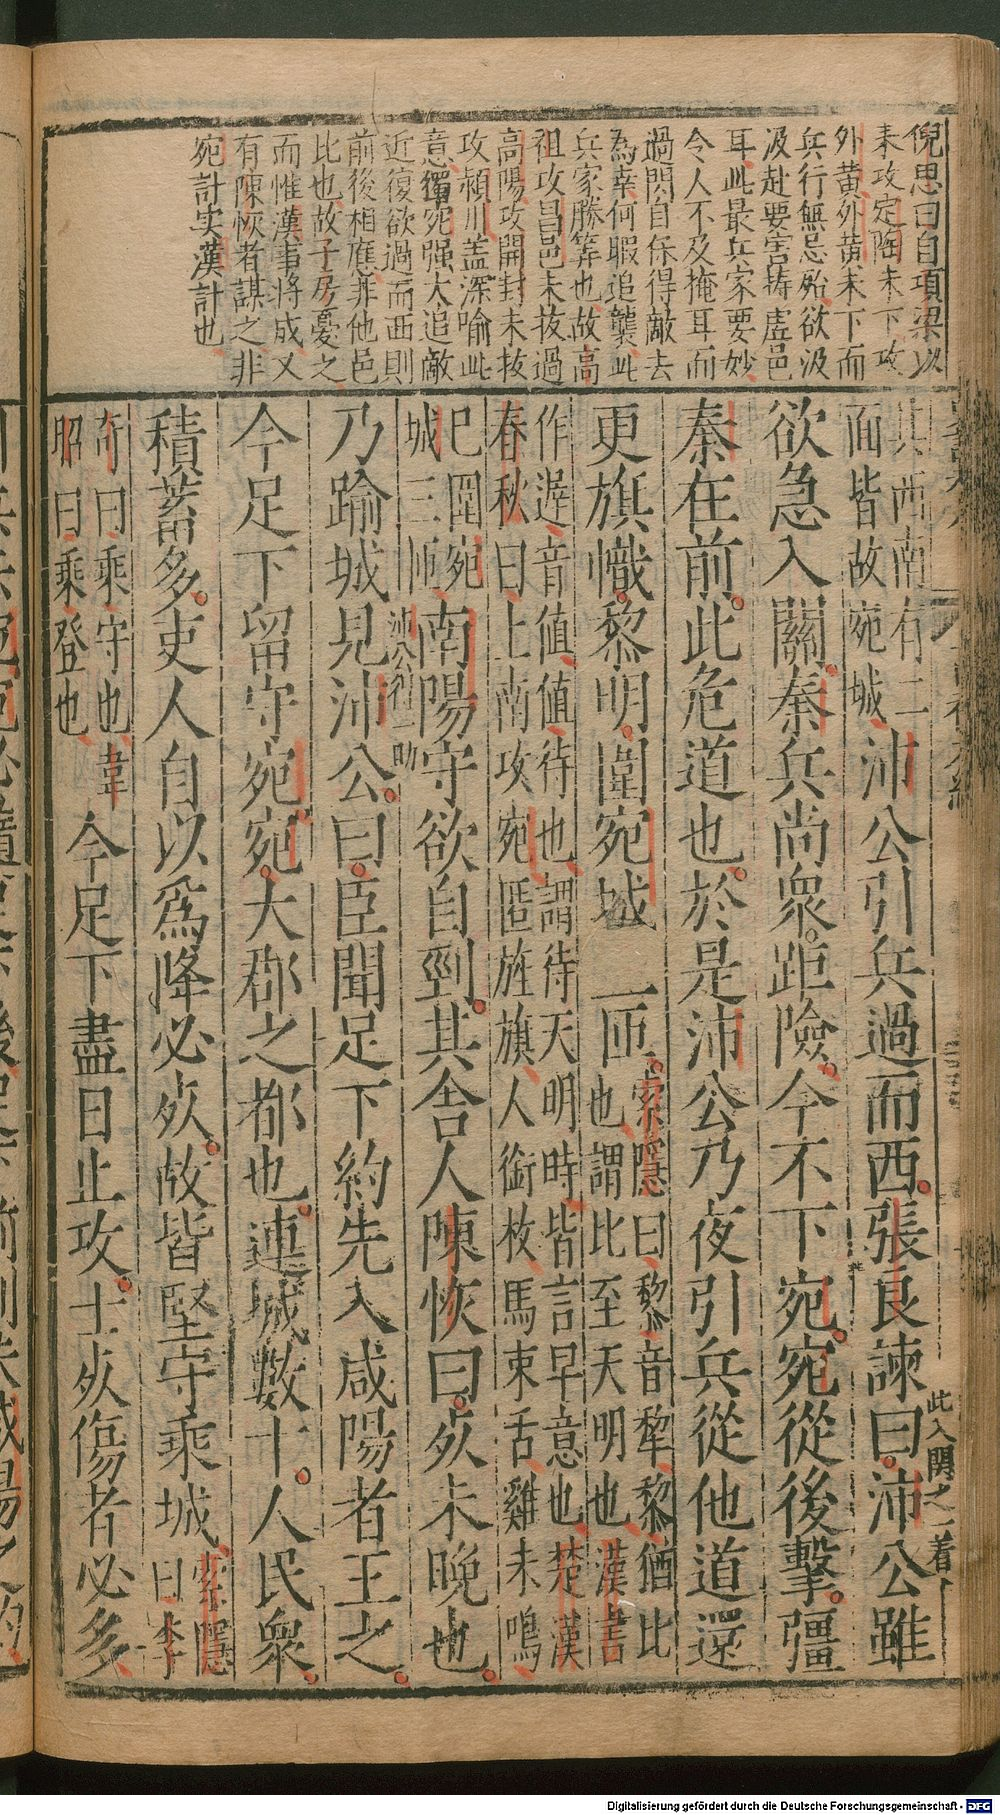 倪思曰自項梁以
來攻定陶未下攻
外黃外黃未下而
兵行無忌殆欲汲
汲赴要害擣虛邑
耳此最兵家要妙
令人不及掩耳而
過閃自保得敵去
為幸何暇追襲此
兵家勝筭也故高
祖攻昌邑未拔過
高陽攻開封未拔
攻潁川盖深喻此
意獨宛强大追敵
近復欲過而西則
前後相應非他邑
比也故子房憂之
而惟漢事將成又
有陳恢者謀之非
宛計实漢計也
其西南有二
面皆故宛城
沛公引兵過而西張良諫曰沛公雖
此入關之一着
欲急入關秦兵尚衆距險今不下宛宛從後擊彊
秦在前此危道也於是沛公乃夜引兵從他道還
更旗幟黎明圍宛城一匝
索隱曰黎音犂黎猶比
也謂比至天明也漢書
作遟音值值待也謂待天明時皆言早意也楚漢
春秋曰上南攻宛匿旌旗人銜枚馬束舌雞未鳴
已圍宛
城三匝
南陽守欲自剄其舍人陳恢曰死未晚也
乃踰城見沛公曰臣聞足下約先入咸陽者王之
今足下留守宛宛大郡之都也連城數十人民衆
積蓄多吏人自以爲降必死故皆堅守乘城
索隱
曰李
奇曰乘守也韋
昭曰乘登也
今足下盡日止攻士死傷者必多
Digitalisierung gefördert durch die Deutsche Forschungsgemeinschaft - DFG